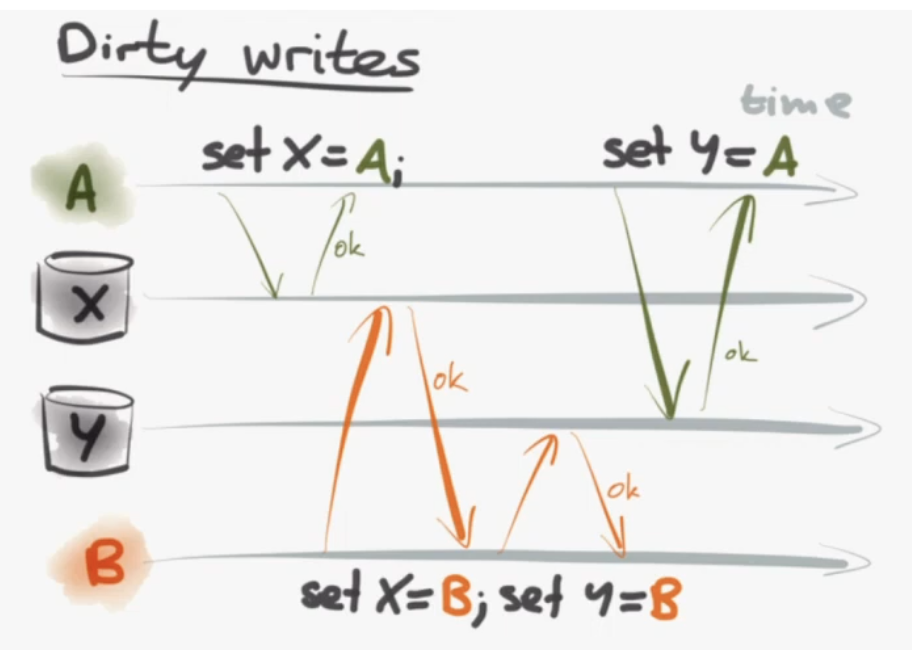 Dirty writes
time
set X = A; set y = A
A
ok
X
ok
ok
y
ok
B
set X = B; set y = B